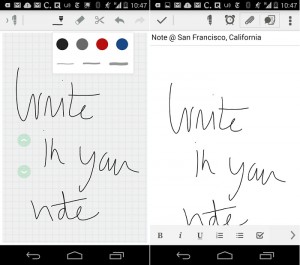 10:47
Write
in your
note
10:47
Note @ San Francisco, California
Write
in your
note
B I U